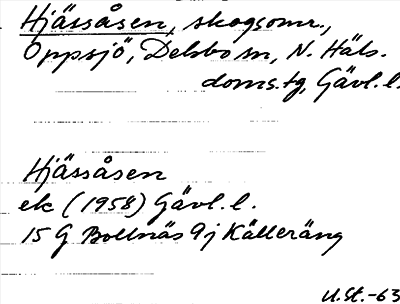 Hjässåsen, skogsomr.,
Oppsjö, Delsbo sn, N. Häls.
doms.tg, Gävl. l.
Hjässåsen
ek (1958) Gävl. l.
15 G Bollnäs 9j Källeräng
U.St.-63